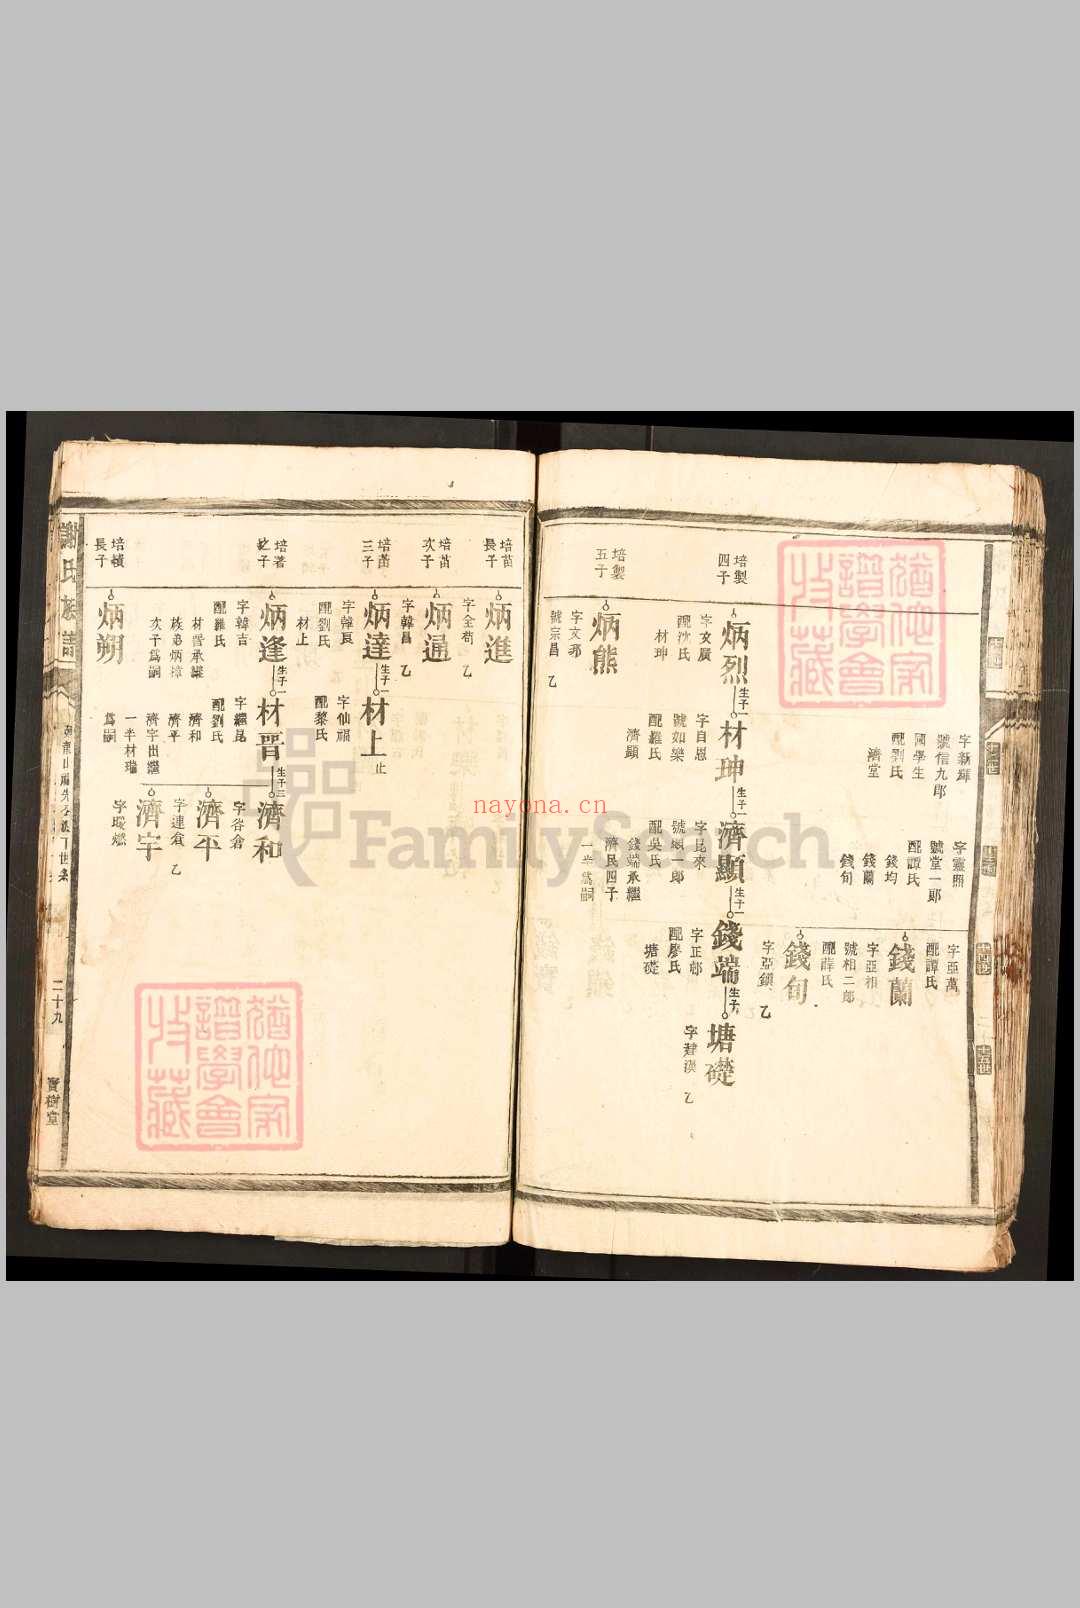 字新輝
號信九郎
國學生
配劉氏
濟堂
字靈照
號堂一郎
配譚氏
錢均
錢蘭
錢旬
字亞萬
配譚氏
錢蘭
字亞相
號相二郎
配薛氏
錢旬
字亞鎮
乙
培製
四子
炳烈
生子一
字文廣
配沈氏
材珅
材珅
生子一
字自恩
號如樂
配羅氏
濟顯
濟顯
生子一
字昆來
號顯一郎
配吳氏
錢端承繼
濟民四子
一半為嗣
錢端
生子一
字正郁
配廖氏
塘礎
塘礎
字建漢
乙
培製
五子
炳熊
字文邦
號宗昌
乙
培苗
長子
炳進
字金苟
乙
培苗
次子
炳通
字韓昌
乙
培苗
三子
炳達
生子一
字韓良
配劉氏
材上
材上
止
字仙福
配黎氏
培著
之子
炳逢
生子一
字韓吉
配羅氏
材晋承繼
族弟炳樟
次子為嗣
材晋
生子三
字繼昆
配劉氏
濟和
濟平
濟宇出繼
一半材瑞
爲嗣
濟和
字谷倉
濟平
字連倉
乙
濟宇
字璇燃
培績
長子
炳朔
謝氏族譜
二十九
寶樹堂
十五世
FamilySearch
nayona.cn
譜學會
收藏